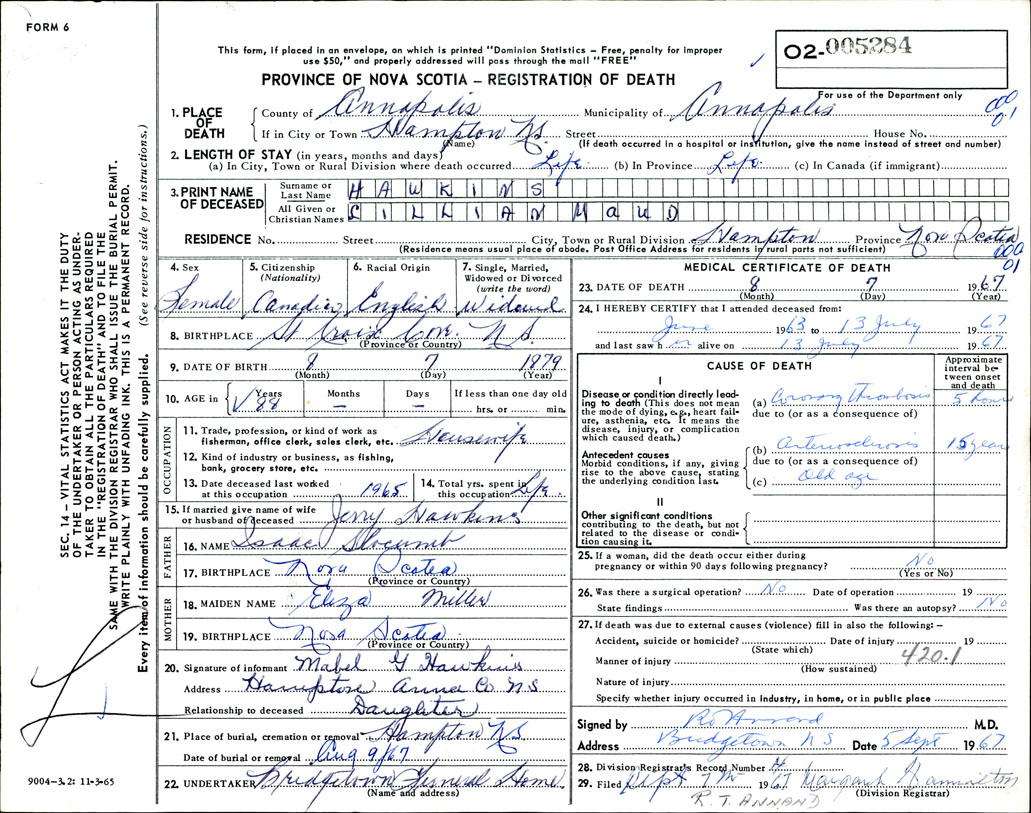 FORM 6
This form, if placed in an envelope, on which is printed "Dominion Statistics – Free, penalty for improper
use $50," and properly addressed will pass through the mail "FREE"
O2-005284
PROVINCE OF NOVA SCOTIA – REGISTRATION OF DEATH
For use of the Department only
1. PLACE OF DEATH
County of Annapolis Municipality of Annapolis
If in City or Town Hampton N.S. Street House No.
(Name) (If death occurred in a hospital or institution, give the name instead of street and number)
2. LENGTH OF STAY (in years, months and days)
(a) In City, Town or Rural Division where death occurred Life (b) In Province Life (c) In Canada (if immigrant)
3. PRINT NAME OF DECEASED
Surname or Last Name HAWKINS
All Given or Christian Names LILLIAN MAUD
RESIDENCE No. Street City, Town or Rural Division Hampton Province Nova Scotia
(Residence means usual place of abode. Post Office Address for residents in rural parts not sufficient)
4. Sex Female
5. Citizenship (Nationality) Canadian
6. Racial Origin English
7. Single, Married, Widowed or Divorced (write the word) Widowed
8. BIRTHPLACE St Croix Cove N.S.
(Province or Country)
9. DATE OF BIRTH 8 7 1879
(Month) (Day) (Year)
10. AGE in Years 88 Months – Days – If less than one day old hrs. or min.
OCCUPATION
11. Trade, profession, or kind of work as fisherman, office clerk, sales clerk, etc. Housewife
12. Kind of industry or business, as fishing, bank, grocery store, etc.
13. Date deceased last worked at this occupation 1965
14. Total yrs. spent in this occupation Life
15. If married give name of wife or husband of deceased Jerry Hawkins
FATHER
16. NAME Isaac Slocumb
17. BIRTHPLACE Nova Scotia
(Province or Country)
MOTHER
18. MAIDEN NAME Eliza Miller
19. BIRTHPLACE Nova Scotia
(Province or Country)
20. Signature of informant Mabel G Hawkins
Address Hampton Anna Co N S
Relationship to deceased Daughter
21. Place of burial, cremation or removal Hampton N S
Date of burial or removal Aug 9/67
22. UNDERTAKER Bridgetown Funeral Home
(Name and address)
MEDICAL CERTIFICATE OF DEATH
23. DATE OF DEATH 8 7 1967
(Month) (Day) (Year)
24. I HEREBY CERTIFY that I attended deceased from:
June 1963 to 13 July 1967
and last saw her alive on 13 July 1967
CAUSE OF DEATH
Approximate interval between onset and death
I
Disease or condition directly leading to death (This does not mean the mode of dying, e.g., heart failure, asthenia, etc. It means the disease, injury, or complication which caused death.)
(a) Coronary Thrombosis 5 hours
due to (or as a consequence of)
Antecedent causes
Morbid conditions, if any, giving rise to the above cause, stating the underlying condition last.
(b) Arteriosclerosis 15 years
due to (or as a consequence of)
(c) Old age
II
Other significant conditions
contributing to the death, but not related to the disease or condition causing it.
25. If a woman, did the death occur either during pregnancy or within 90 days following pregnancy? No
(Yes or No)
26. Was there a surgical operation? No Date of operation 19
State findings Was there an autopsy? No
27. If death was due to external causes (violence) fill in also the following: –
Accident, suicide or homicide? Date of injury 19
(State which)
Manner of injury 420.1
(How sustained)
Nature of injury
Specify whether injury occurred in industry, in home, or in public place
Signed by R. Annand M.D.
Address Bridgetown N S Date 5 Sept 1967
28. Division Registrar's Record Number
29. Filed Sept 7th 1967 Margaret Hamilton
(Division Registrar)
R. T. ANNAND
SEC. 14 – VITAL STATISTICS ACT MAKES IT THE DUTY
OF THE UNDERTAKER OR PERSON ACTING AS UNDER-
TAKER TO OBTAIN ALL THE PARTICULARS REQUIRED
IN THE "REGISTRATION OF DEATH" AND TO FILE THE
SAME WITH THE DIVISION REGISTRAR WHO SHALL ISSUE THE BURIAL PERMIT.
WRITE PLAINLY WITH UNFADING INK. THIS IS A PERMANENT RECORD.
Every item of information should be carefully supplied. (See reverse side for instructions.)
9004-3.2: 11-3-65